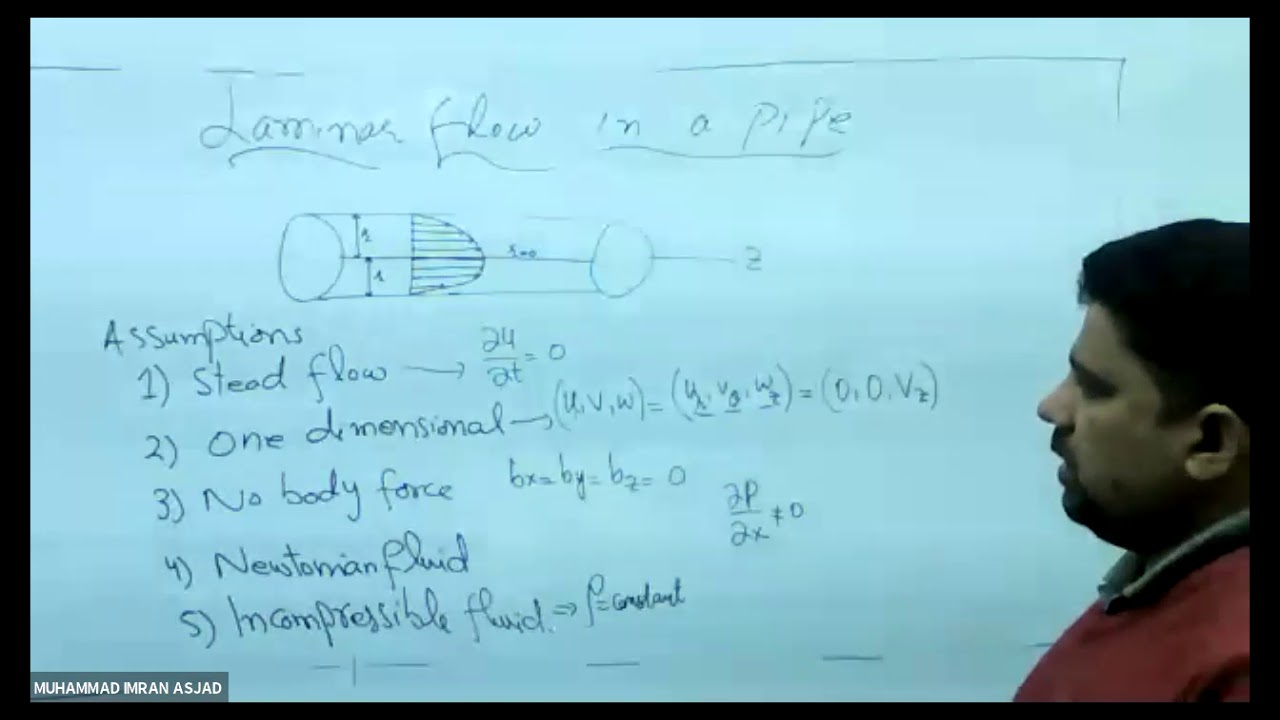 Laminar flow in a pipe
r
r
r=0
z
Assumptions
1) Stead flow → ∂u/∂t = 0
2) One dimensional → (u,v,w) = (u_r, v_θ, w_z) = (0,0,V_z)
3) No body force bx=by=bz=0
∂P/∂x ≠ 0
4) Newtonian fluid
5) Incompressible fluid. ⇒ ρ=constant
MUHAMMAD IMRAN ASJAD